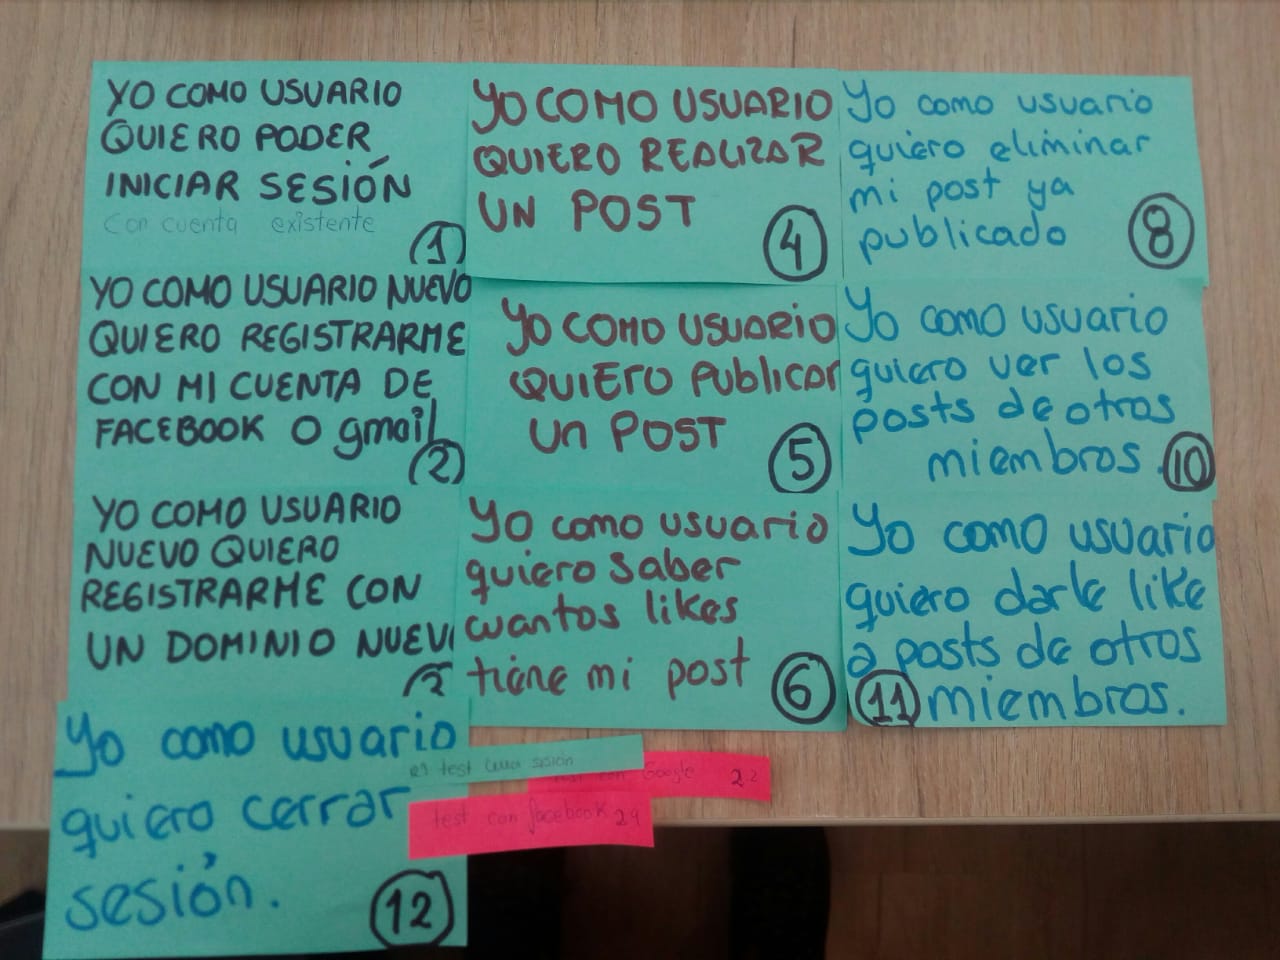 YO COMO USUARIO
QUIERO PODER
INICIAR SESIÓN
Con cuenta existente
1
YO COMO USUARIO NUEVO
QUIERO REGISTRARME
CON MI CUENTA DE
FACEBOOK O gmail
2
YO COMO USUARIO
NUEVO QUIERO
REGISTRARME CON
UN DOMINIO NUEV
Yo como usuario
quiero cerrar
sesión.
12
YO COMO USUARIO
QUIERO REALIZAR
UN POST
4
YO COMO USUARIO
QUIERO PUBLICAR
UN POST
5
Yo como usuario
quiero saber
cuantos likes
tiene mi post
6
test sesión
con Google 2.2
test con facebook
Yo como usuario
quiero eliminar
mi post ya
publicado
8
Yo como usuario
quiero ver los
posts de otros
miembros.
10
Yo como usuario
quiero darle like
a posts de otros
11 miembros.